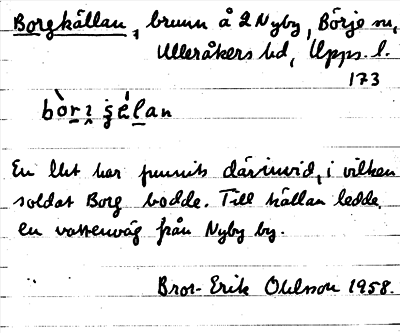 Borgkällan, brunn å 2 Nyby, Börje sn,
Ulleråkers hd, Upps. l.
173
En lht har funnits därinvid, i vilken
soldat Borg bodde. Till källan ledde
en vattenväg från Nyby by.
Bror-Erik Ohlsson 1958.